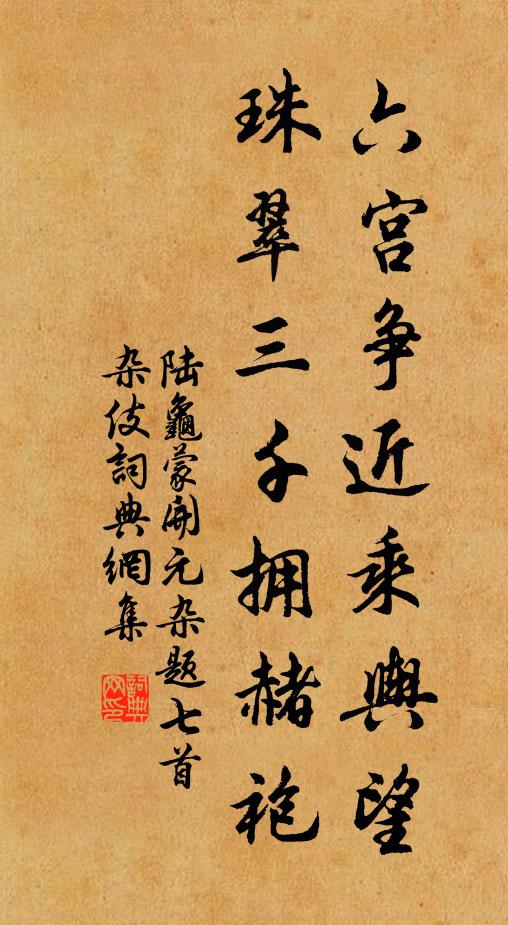 六宫争近乘輿望
珠翠三千拥赭袍
陆龜蒙開元杂题七首
杂伎詞典網集
詞典网印